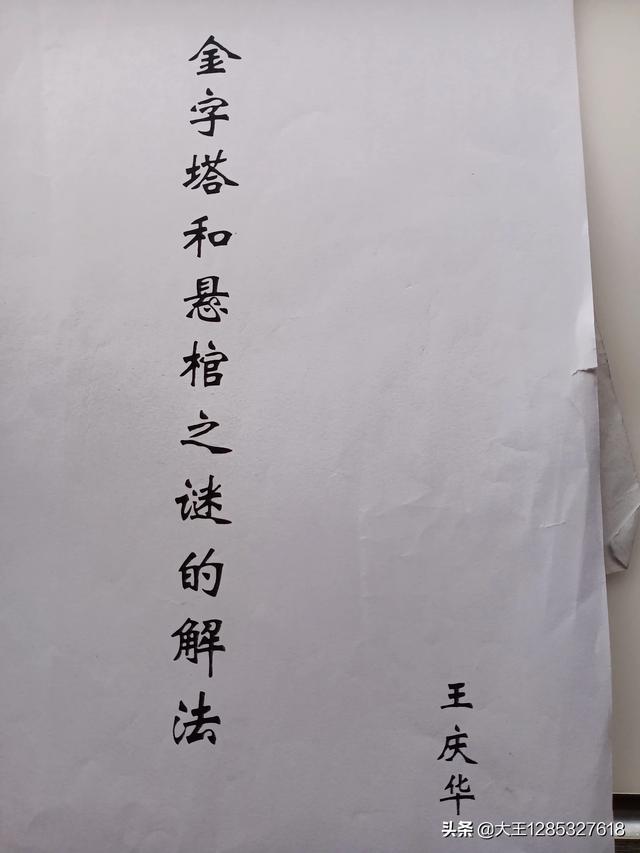 金字塔和悬棺之谜的解法
王庆华
头条 @大王1285327618